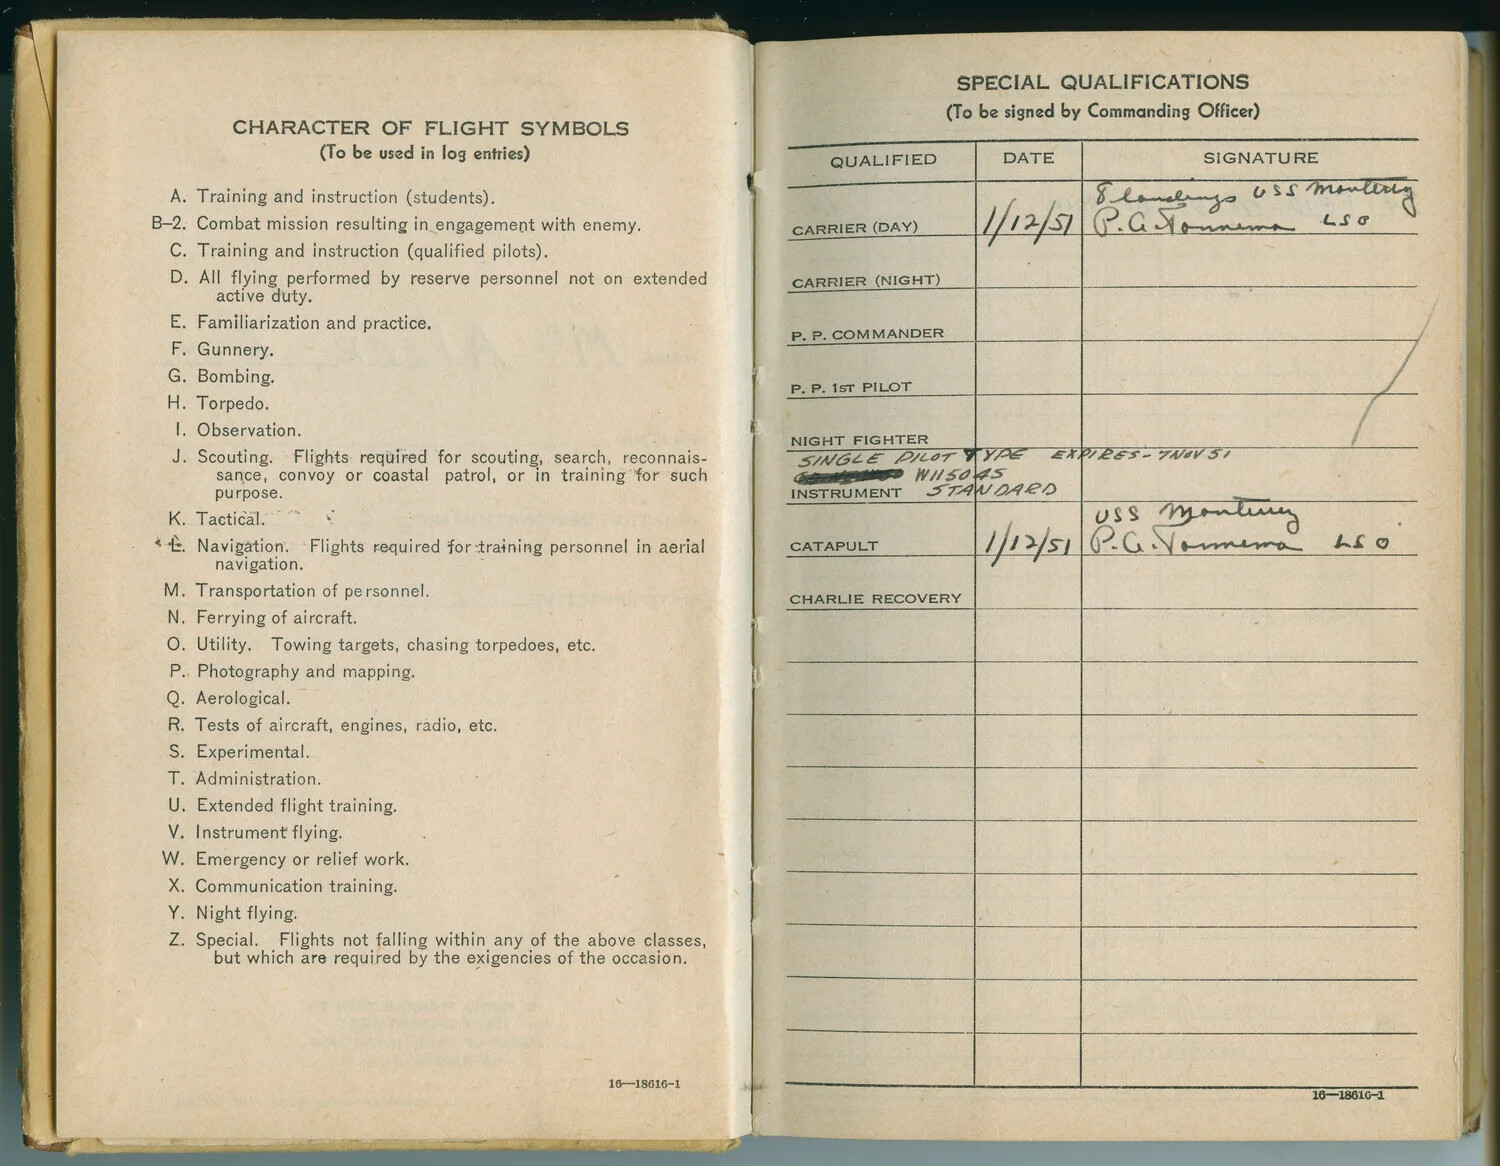 CHARACTER OF FLIGHT SYMBOLS
(To be used in log entries)
A. Training and instruction (students).
B–2. Combat mission resulting in engagement with enemy.
C. Training and instruction (qualified pilots).
D. All flying performed by reserve personnel not on extended
active duty.
E. Familiarization and practice.
F. Gunnery.
G. Bombing.
H. Torpedo.
I. Observation.
J. Scouting. Flights required for scouting, search, reconnais-
sance, convoy or coastal patrol, or in training for such
purpose.
K. Tactical.
L. Navigation. Flights required for training personnel in aerial
navigation.
M. Transportation of personnel.
N. Ferrying of aircraft.
O. Utility. Towing targets, chasing torpedoes, etc.
P. Photography and mapping.
Q. Aerological.
R. Tests of aircraft, engines, radio, etc.
S. Experimental.
T. Administration.
U. Extended flight training.
V. Instrument flying.
W. Emergency or relief work.
X. Communication training.
Y. Night flying.
Z. Special. Flights not falling within any of the above classes,
but which are required by the exigencies of the occasion.
16—18616-1
SPECIAL QUALIFICATIONS
(To be signed by Commanding Officer)
QUALIFIED DATE SIGNATURE
8 landings USS Monterey
CARRIER (DAY) 1/12/51 P. G. LSO
CARRIER (NIGHT)
P. P. COMMANDER
P. P. 1ST PILOT
NIGHT FIGHTER
SINGLE PILOT TYPE EXPIRES - 7 NOV 51
W115045
INSTRUMENT STANDARD
USS Monterey
CATAPULT 1/12/51 P. G. LSO
CHARLIE RECOVERY
16—18616-1